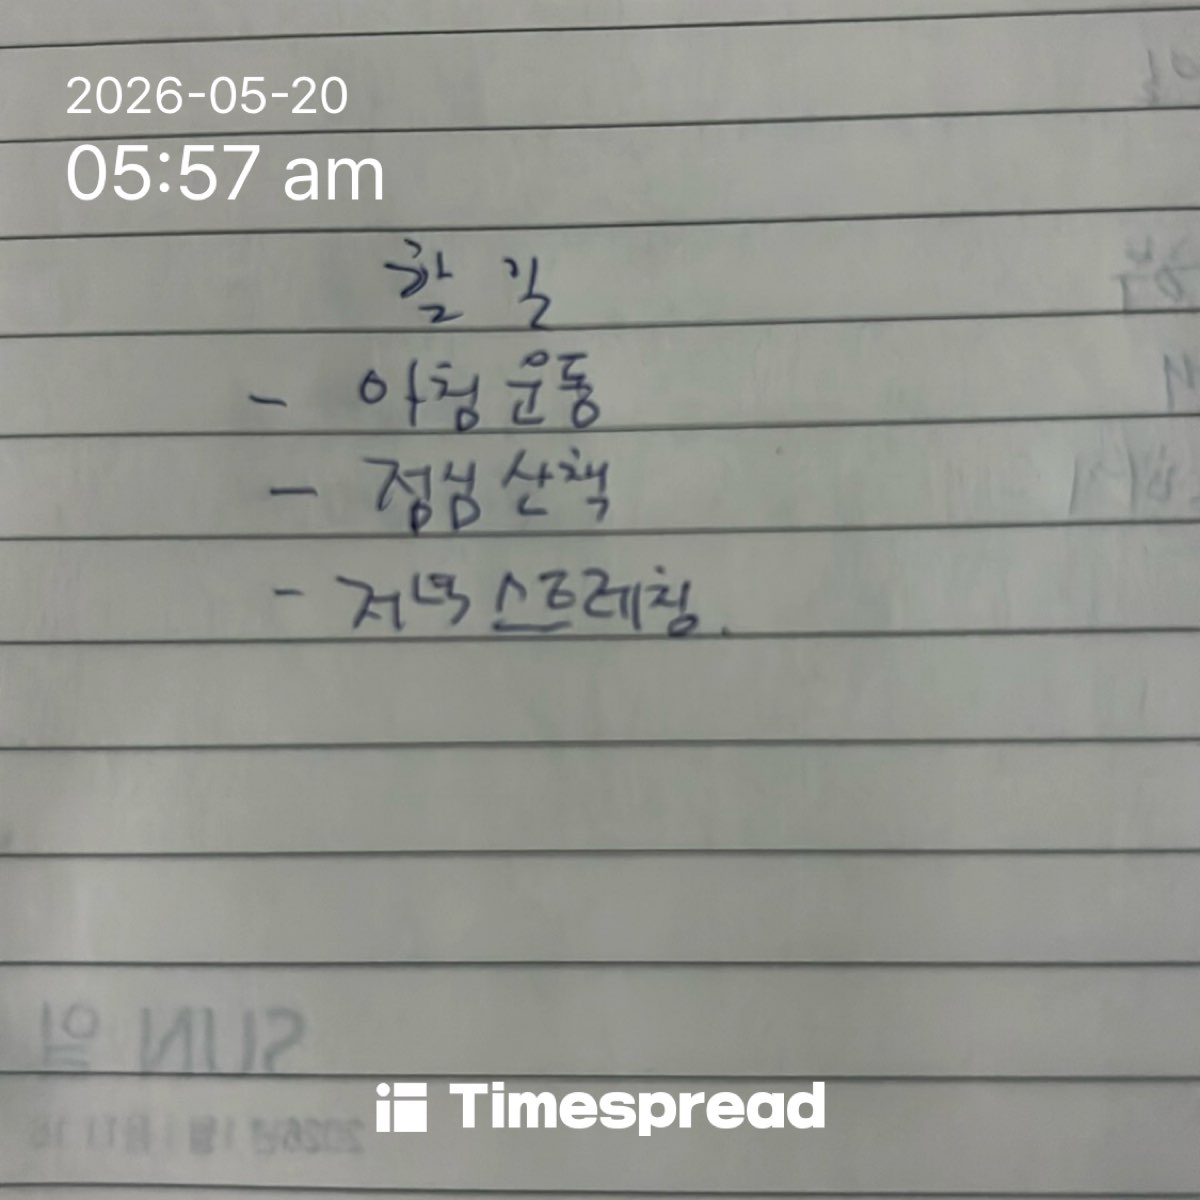 2026-05-20
05:57 am
할 일
- 아침 운동
- 점심 산책
- 저녁 스트레칭.
SUN 일
Timespread